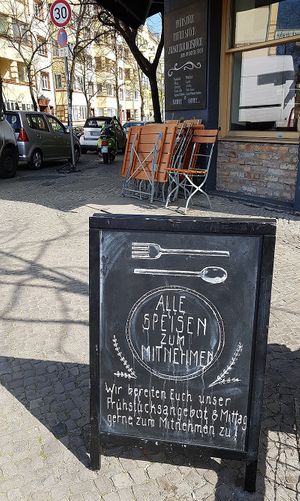 30
ALLE
SPEISEN
ZUM
MITNEHMEN
Wir bereiten Euch unser
Frühstücksangebot & Mittag
gerne zum Mitnehmen zu!